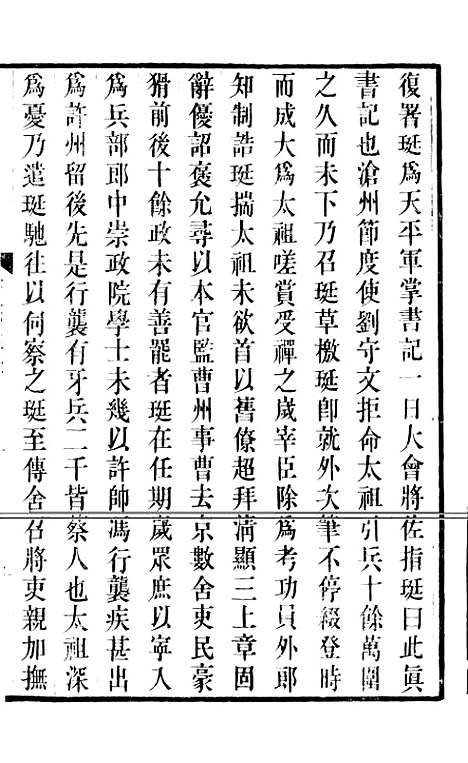 復署珽爲天平軍掌書記一日大會將佐指珽曰此眞
書記也滄州節度使劉守文拒命太祖引兵十餘萬圍
之久而未下乃召珽草檄珽卽就外次筆不停綴登時
而成大爲太祖嗟賞受禪之歲宰臣除爲考功員外郎
知制誥珽揣太祖未欲首以舊僚超拜淸顯三上章固
辭優詔褒允尋以本官監曹州事曹去京數舍吏民豪
猾前後十餘政未有善罷者珽在任期歲眾庶以寧入
爲兵部郎中崇政院學士未幾以許師馮行襲疾甚出
爲許州留後先是行襲有牙兵二千皆蔡人也太祖深
爲憂乃遣珽馳往以伺察之珽至傳舍召將吏親加撫